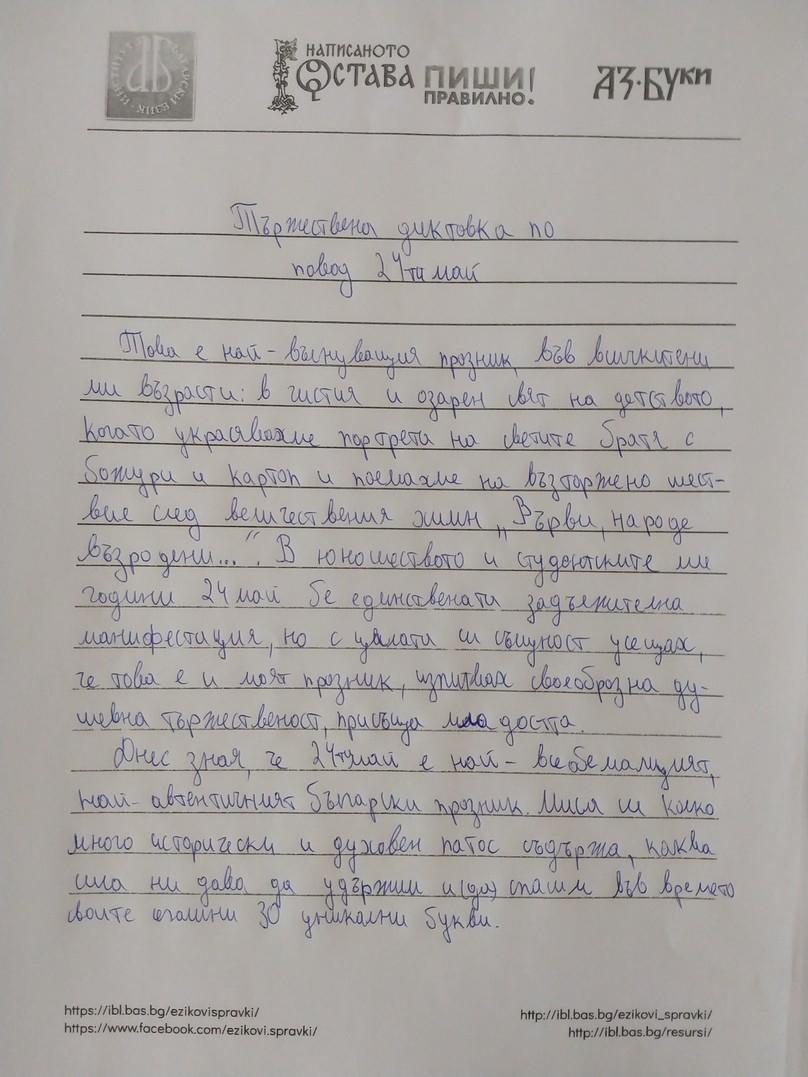 ИНСТИТУТ ЗА БЪЛГАРСКИ ЕЗИК
НАПИСАНОТО
ОСТАВА ПИШИ
ПРАВИЛНО!
АЗ·БУКИ
Тържествена диктовка по
повод 24ти май
Това е най-вълнуващия празник, във всичкитени
ми възрасти: в чистия и озарен свят на детството,
когато украсявахме портрета на светите братя с
божури и картоп и поемахме на възторжено шест-
вие след величествения химн „Върви, народе
възродени...“. В юношеството и студентските ми
години 24 май бе единствената задължителна
манифестация, но с цялата си същност усещах,
че това е и моят празник, изпитвах своеобразна ду-
шевна тържественост, присъща младостта.
Днес зная, че 24ти май е най-всебемащият,
най-автентичният български празник. Мисля си колко
много исторически и духовен патос съдържа, каква
сила ни дава да удържим и (да) спасим във времето
своите 30 уникални букви.
https://ibl.bas.bg/ezikovispravki/
https://www.facebook.com/ezikovi.spravki/
http://ibl.bas.bg/ezikovi_spravki/
http://ibl.bas.bg/resursi/